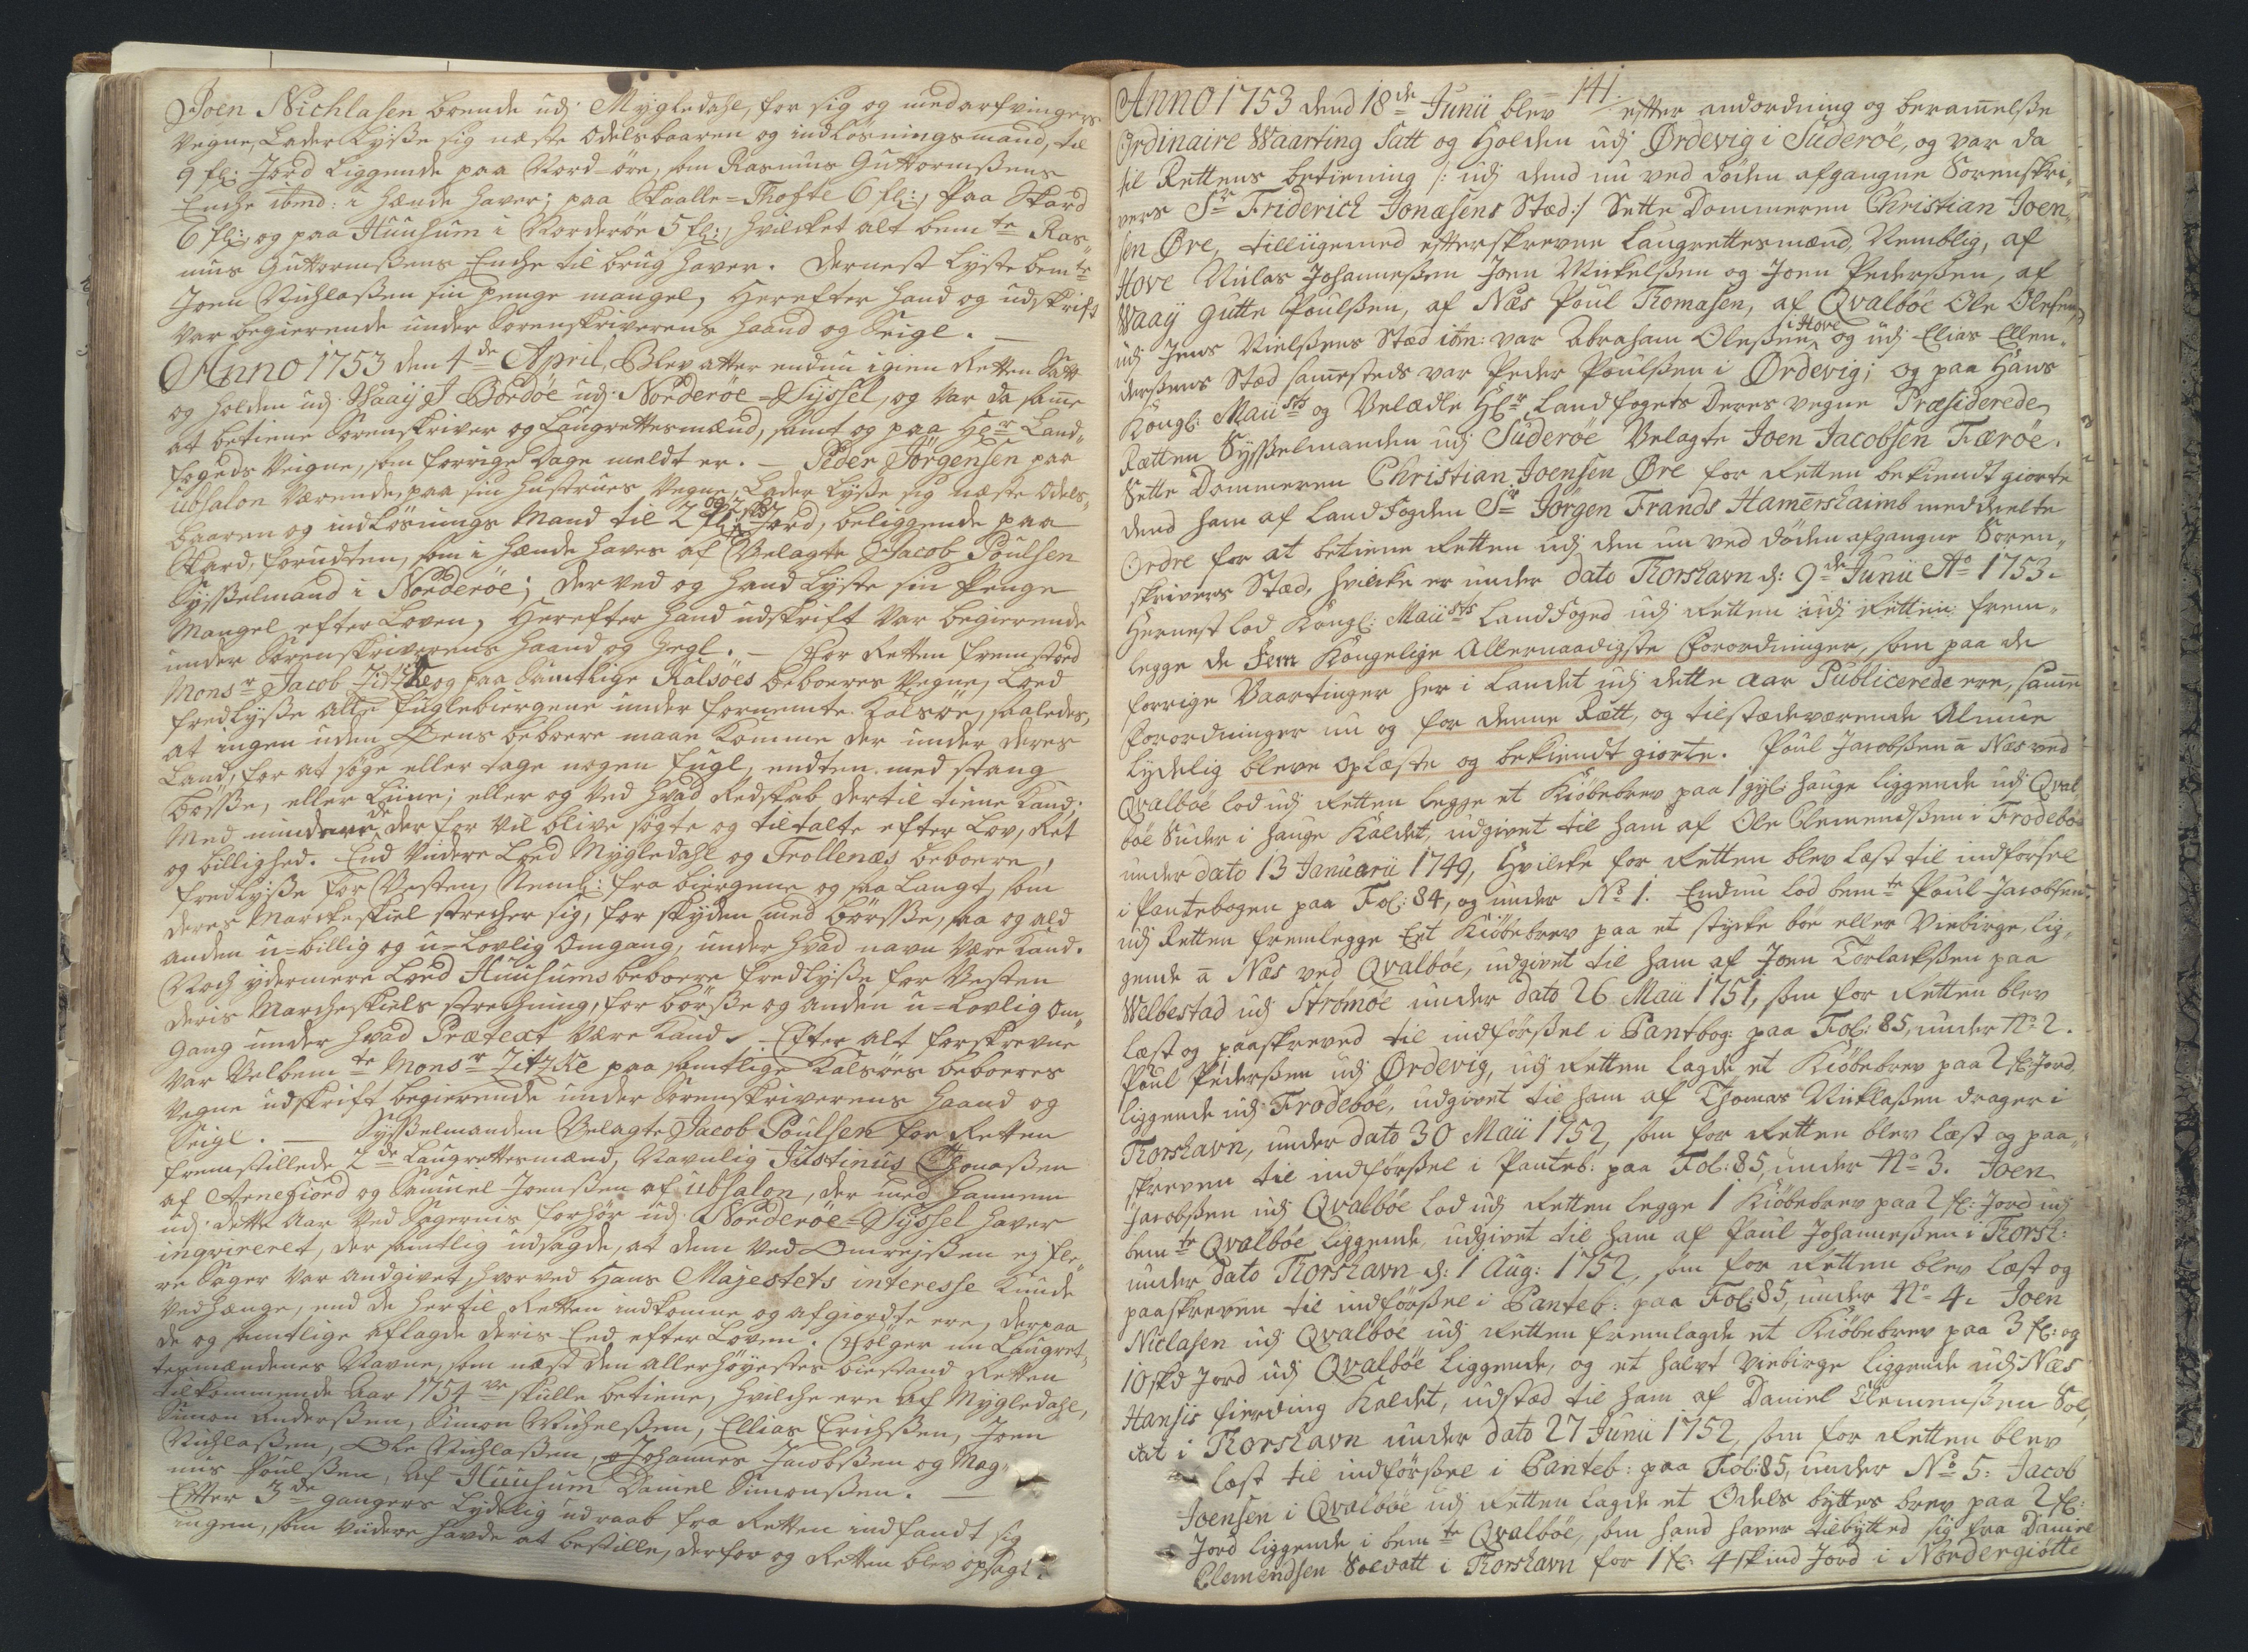 Joen Nichlasen boende udj Mygledahl, for sig og medarfvingers
Vegne, Lader Lyße sig næste Odelsbaaren og indløsningsmand, til
9 fl: Jord Liggende paa Nord-öre, som Rasmus Guttormßens
Enche ibmd: i hænde haver; paa Skaalle=Thofte 6 fl:, paa Skard
6 fl:, og paa Huusum i Norderöe 5 fl:, hvilcket alt bemte Ras„
mus Guttormßens Enche til brug haver. Dernest Lyste bemte
Joen Nichlaßen sin penge mangel, Herefter hand og udskrift
var begierende under Sorenskriverens haand og Seigl. —
Anno 1753 den 4de April, Blev atter endnu igien Retten Satt
og holden udj Waaij I Bordöe udj Norderöe=Syssel, og var da samme
at betiene Sorenskriver og Laugrettesmænd, samt og paa Hr Land„
fogeds Veigne, som forrige Dage meldt er. — Peder Jörgensen paa
ubsalon værende, paa sin Hustrues Vegne, Lader Lyße sig næste Odels„
baaren og indlösnings Mand til 2 fl: Jord, beliggende paa
Skard, forudten, som i hænde haves af Velagte Jacob Poulsen
Sysselmand i Norderöe; derved og hand Lyste sin Penge
Mangel efter Loven, Herefter hand udskrift var begierende
under Sorenskriverens haand og Segl. — For Retten fremstoed
Monsr Jacob Zitzke og paa Samtlige Kalsöes beboeres Vegne, Loed
fredlyße alle fuglebiergene under fornemte Kalsöe, saaledes,
at ingen uden Öens beboere maae komme der under deres
Land, for at söge eller tage nogen fugl, endten med stang
bösse, eller Liine; eller og ved hvad Redskab dertil tiene kand;
Med mindre de derfor vil blive sögte og tiltalte efter Lov, Ret
og billighed. End viidere Loed Mygledahl og Trollenæs beboere,
fredlysse for Vesten, Neml: fra biergene og saa Langt, som
deres Marckeskiel strecher sig, for skyden med börsse, saa og ald
anden u=billig og u=Lovlig Omgang, under hvad navn være kand.
Noch ydermere Loed Huusums beboere fredlysse for Vesten
deris Marcheskiels strechning, for börsse og anden u=Lovlig Om„
gang under hvad Prætext være kand. — Efter alt forskrevne
var Velbemte Monsr Zitzke paa samtlige Kalsöes beboeres
Vegne udskrift begierende under Sorenskriverens haand og
Seigl. — Sysselmanden Velagte Jacob Poulsen for Retten
fremstillede 2de Laugrettesmænd, Navnlig Justinus Thomaßen
af Arnefiord og Samuel Joenßen af ubsalon, der med hannem
udj dette Aar ved Sagernes forhör udj Norderöe=Syssel haver
inqvireret, der samtlig udsagde, at dem ved Omreyßen ej fle„
re Sager var andgivet, hvorved Hans Majestets interesse kunde
vedhænge, end de hertil Retten indkomne og afgiordte ere, derpaa
de og samtlige aflagde deris Eed efter Loven. Fölger nu Laugret„
tesmændenes Navne, som næst den allerhöyestes biestand Retten
tilkommende Aar 1754 skulle betiene, hvilche ere af Mygledahl,
Simon Anderßen, Simon Michelßen, Ellias Erichßen, Joen
Nichlaßen, Ole Nichlaßen, Johannes Jacobßen og Mag„
nus Poulßen, af Huusum Daniel Simonßen. —
Efter 3de ganger Lydelig udraab fra Retten indfandt sig
ingen, som viidere havde at bestille, derfor og Retten blev opsagt.
141.
Anno 1753 dend 18de Junii blev efter andordning og berammelße
Ordinaire Waarting Satt og Holden udj Ørdevig i Suderöe, og var da
til Rettens betiening /: udj dend nu ved döden afgangne Sorenskri„
vers Sr Friderich Jonæsens Stæd:/ Sette Dommeren Christian Joen„
sen Øre, tilliigemed efterskrevne Laugrettesmænd, Nemblig, af
Hove Niclas Johanneßen Joen Mickelßen og Joen Pederßen, af
Waaij Gutte Poulßen, af Næs Poul Thomasen, af Qvalböe Ole Olesen,
udj Jens Nielßens Stæd item: var Abraham Oleßen i Hove og udj Elias Ellen„
derßens Stæd sammesteds var Peder Poulßen i Ørdevig; og paa Hans
Kongl: Maiists og Velædle Hr Landfogets Deres vegne Præsiderede
Rætten Sysselmanden udj Suderöe Velagte Joen Jacobsen Færöe.
Sette Dommeren Christian Joensen Øre for Retten bekiendtgiorte
dend ham af Landfogden Sr Jörgen Frands Hamershaimb meddeelte
Ordre for at betiene Retten udj den nu ved döden afgangne Soren„
skrivers Stæd, hvilcke er under dato Thorshavn d: 9de Junii Ao 1753.
Hernest lod Kongl: Maiists Landfoged udj Retten udj Retten frem„
legge de Fem Kongelige Allernaadigste Forordninger, som paa de
forrige Vaartinger her i Landet udj dette Aar Publicerede ere, samme
Forordninger nu og for denne Rætt, og tilstædeværende Almue
lydelig bleve oplæste og bekiendt giorte. Poul Jacobßen a Næs ved
Qvalböe lod udj Retten legge et Kiöbebrev paa 1 gyl: hauge liggende udj Qval„
böe Suder i hauge kaldet, udgivet til ham af Ole Clemendßen i Frodeböe
under dato 13 Januarii 1749, Hvilcke for Retten blev læst til indförsel
i Pantebogen paa Fol: 84, og under No 1. Endnu lod bemte Poul Jacobsen
udj Retten fremlegge Eet Kiöbebrev paa et stycke böe eller Viebirge, lig„
gende a Næs ved Qvalböe, udgivet til ham af Joen Torlackßen paa
Welbestad udj Strömöe under dato 26 Maii 1751, som for Retten blev
læst og paaskreved til indförßel i Pantbog: paa Fol: 85, under No 2.
Poul Pederßen udj Ørdevig, udj Retten lagde et Kiöbebrev paa 2 fl: Jord
liggende udj Frodeböe, udgivet til ham af Thomas Nicklaßen drager i
Thorshavn, under dato 30 Maii 1752, som for Retten blev læst og paa„
skreven til indförßel i Panteb: paa Fol: 85, under No 3. Joen
Jacobßen udj Qvalböe lod udj Retten legge 1 Kiöbebrev paa 2 fl: Jord udj
bemte Qvalböe liggende, udgivet til ham af Poul Johanneßen i Thorsh:
under dato Thorshavn d: 1 Aug: 1752, som for Retten blev læst og
paaskreven til indförßel i Panteb: paa Fol: 85, under No 4. Joen
Niclasen udj Qvalböe udj Retten fremlagde et Kiöbebrev paa 3 fl: og
10 skd Jord udj Qvalböe liggende, og et halvt Viebirge liggende udj Næs
Hansis fierding kaldet, udstæd til ham af Daniel Clemenßen Sol„
dat i Thorshavn under dato 27 Junii 1752, som for Retten blev
læst til indförßel i Panteb: paa Fol: 85, under No 5: Jacob
Joensen i Qvalböe udj Retten lagde et Odels byttes brev paa 2 fl:
Jord liggende i bemte Qvalböe, som hand haver tilbytted sig fra Daniel
Clemendsen Soldatt i Thorshavn for 1 fl: 4 skind Jord i Nordergiötte